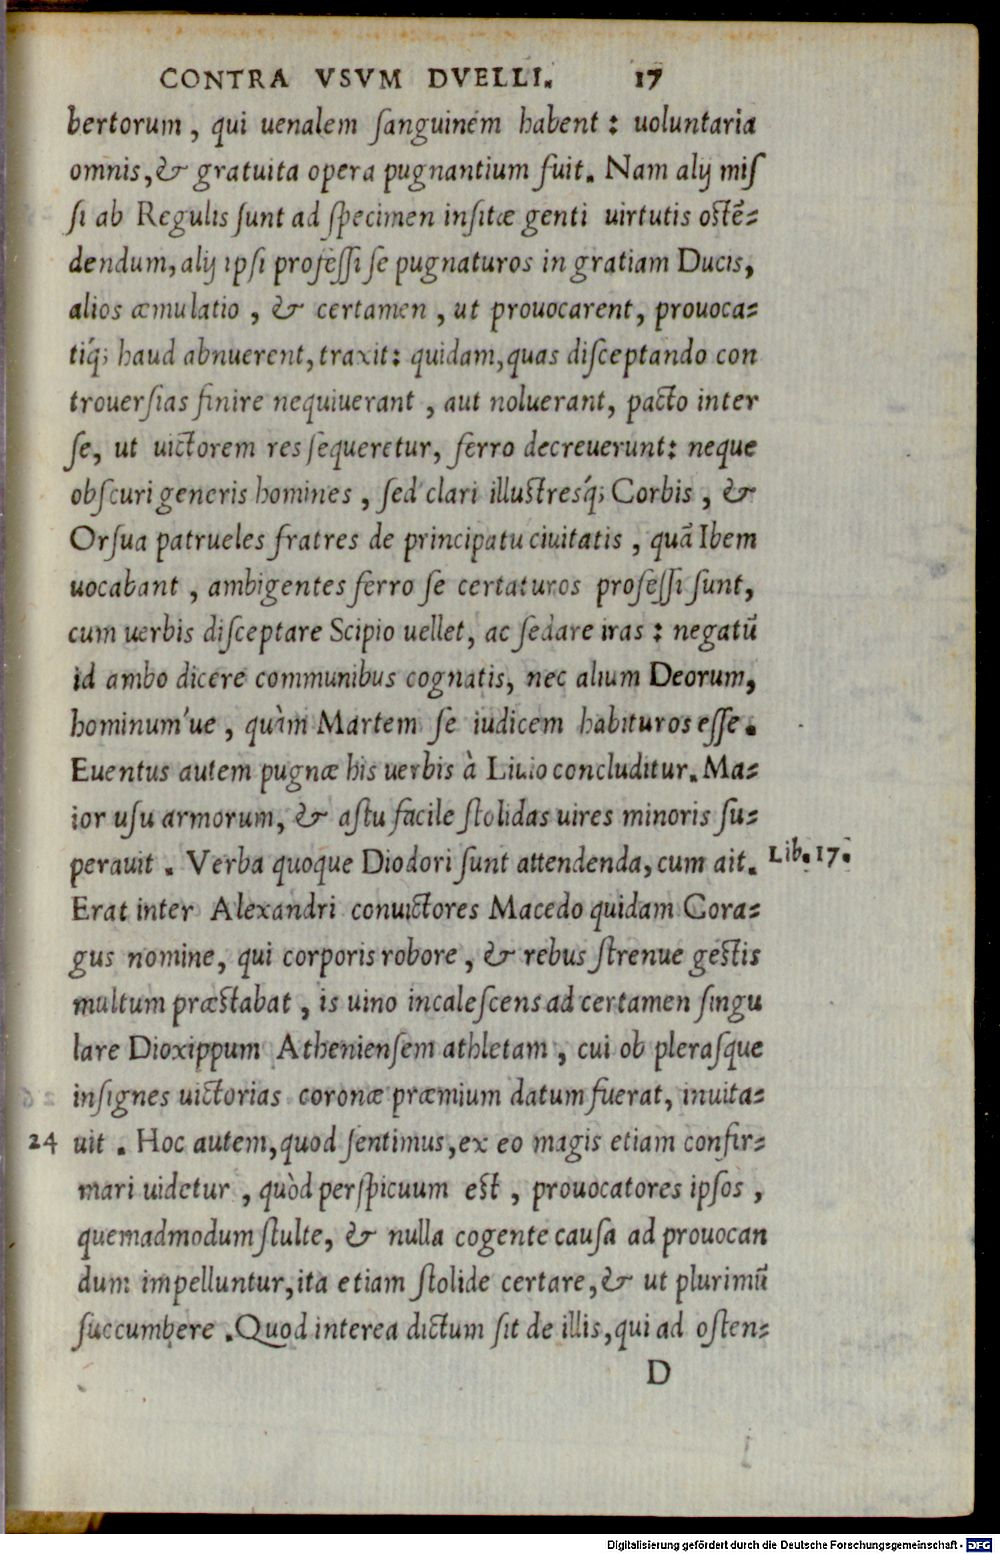 CONTRA VSVM DVELLI. 17
bertorum, qui uenalem ſanguinem habent: uoluntaria
omnis, & gratuita opera pugnantium fuit. Nam alij miſ
ſi ab Regulis ſunt ad ſpecimen inſitæ genti uirtutis oſtē-
dendum, alij ipſi profeſſi ſe pugnaturos in gratiam Ducis,
alios æmulatio, & certamen, ut prouocarent, prouoca-
tiq́; haud abnuerent, traxit: quidam, quas diſceptando con
trouerſias finire nequiuerant, aut noluerant, pacto inter
ſe, ut uictorem res ſequeretur, ferro decreuerunt: neque
obſcuri generis homines, ſed clari illuſtresq́; Corbis, &
Orſua patrueles fratres de principatu ciuitatis, quā Ibem
uocabant, ambigentes ferro ſe certaturos profeſſi ſunt,
cum uerbis diſceptare Scipio uellet, ac ſedare iras: negatū
id ambo dicere communibus cognatis, nec alium Deorum,
hominum'ue, quàm Martem ſe iudicem habituros eſſe.
Euentus autem pugnæ his uerbis à Liuio concluditur. Ma-
ior uſu armorum, & aſtu facile ſtolidas uires minoris ſu-
perauit. Verba quoque Diodori ſunt attendenda, cum ait. Lib. 17.
Erat inter Alexandri conuictores Macedo quidam Cora-
gus nomine, qui corporis robore, & rebus ſtrenue geſtis
multum præſtabat, is uino incaleſcens ad certamen ſingu
lare Dioxippum Athenienſem athletam, cui ob pleraſque
inſignes uictorias coronæ præmium datum fuerat, inuita-
24 uit. Hoc autem, quod ſentimus, ex eo magis etiam confir-
mari uidetur, quòd perſpicuum eſt, prouocatores ipſos,
quemadmodum ſtulte, & nulla cogente cauſa ad prouocan
dum impelluntur, ita etiam ſtolide certare, & ut plurimū
ſuccumbere. Quod interea dictum ſit de illis, qui ad oſten-
D
Digitalisierung gefördert durch die Deutsche Forschungsgemeinschaft - DFG